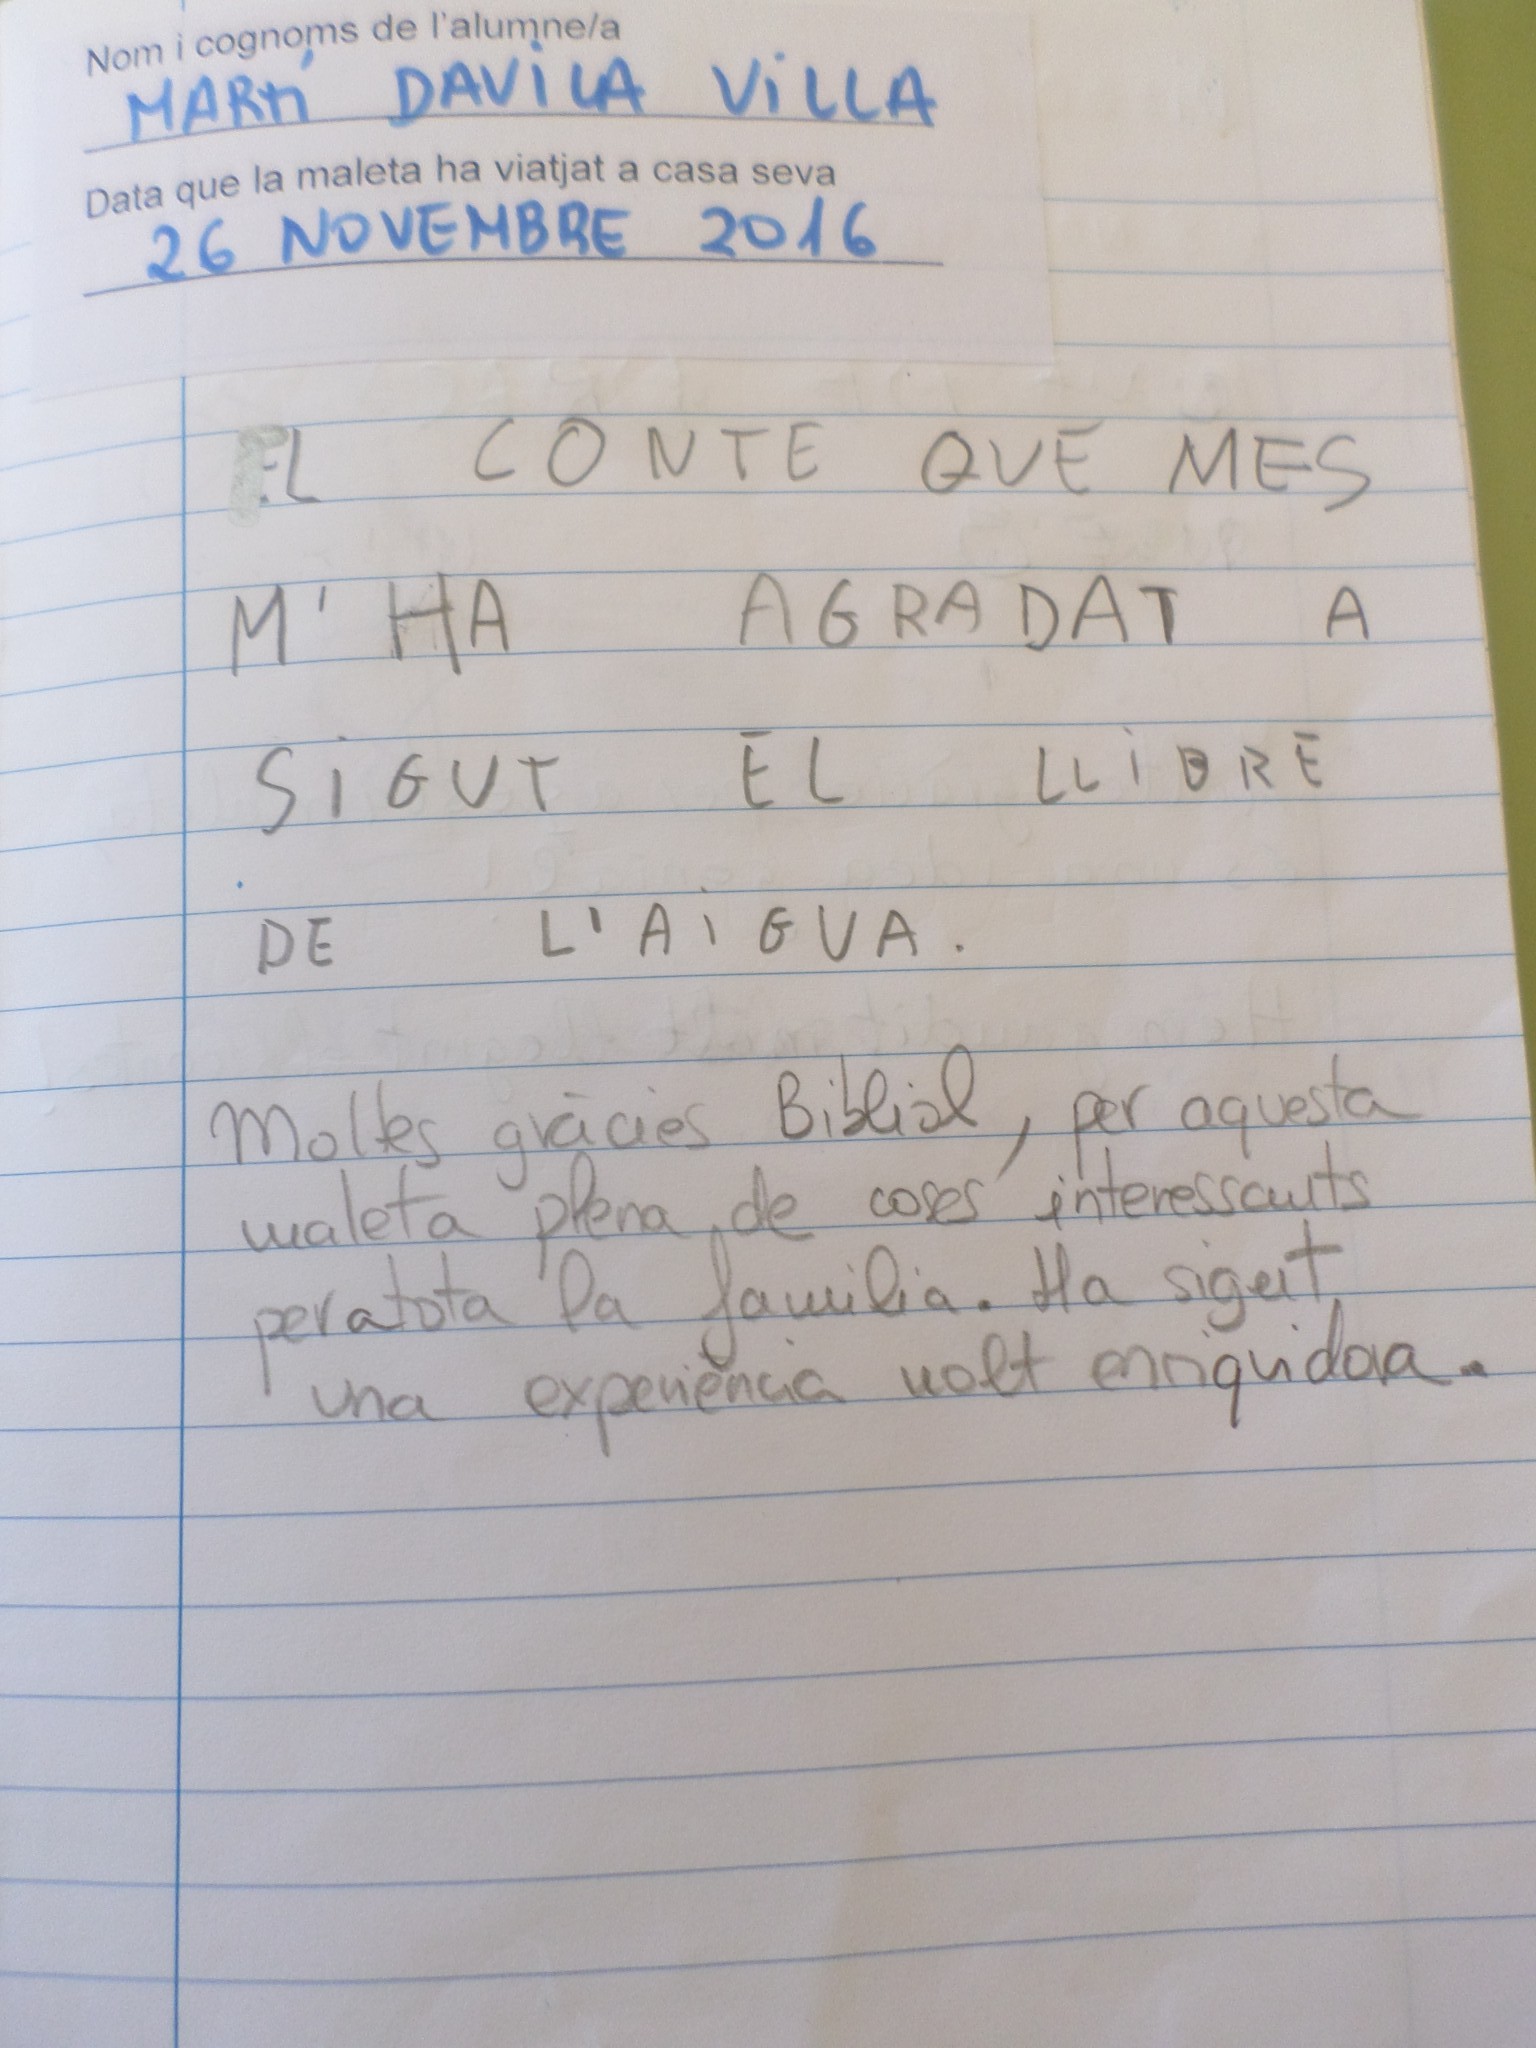 Nom i cognoms de l'alumne/a
MARTÍ DAVILA VILLA
Data que la maleta ha viatjat a casa seva
26 NOVEMBRE 2016
EL CONTE QUE MES
M'HA AGRADAT A
SIGUT EL LLIBRE
DE L'AIGUA.
Moltes gràcies Biblial, per aquesta
maleta plena de coses interessants
per a tota la família. Ha sigut
una experiència molt enriquidora.